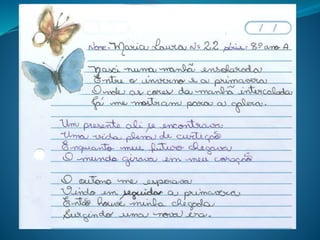 Nome: Maria Laura Nº 22 série: 8º ano A.
Nasci numa manhã ensolarada
Entre o inverno e a primavera
Onde as cores da manhã intercalada
Já me mostram para a galera.
Um presente ali se encontrava
Uma vida plena de curtição
Enquanto meu futuro chegava
O mundo girava em meu coração
O outono me esperava
Vindo em seguida a primavera
Então houve minha chegada
Surgindo uma nova era.